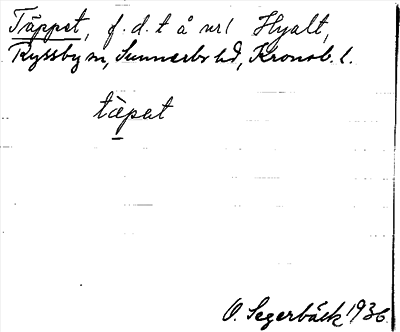 Täppet, f.d.t å nr1 Hjalt,
Ryssby sn, Sunnerbo hd, Kronob. l.
tæ̀pat
O. Segerbäck 1936.